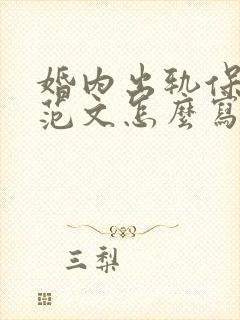 婚内出轨保
范文怎麼寫
三梨